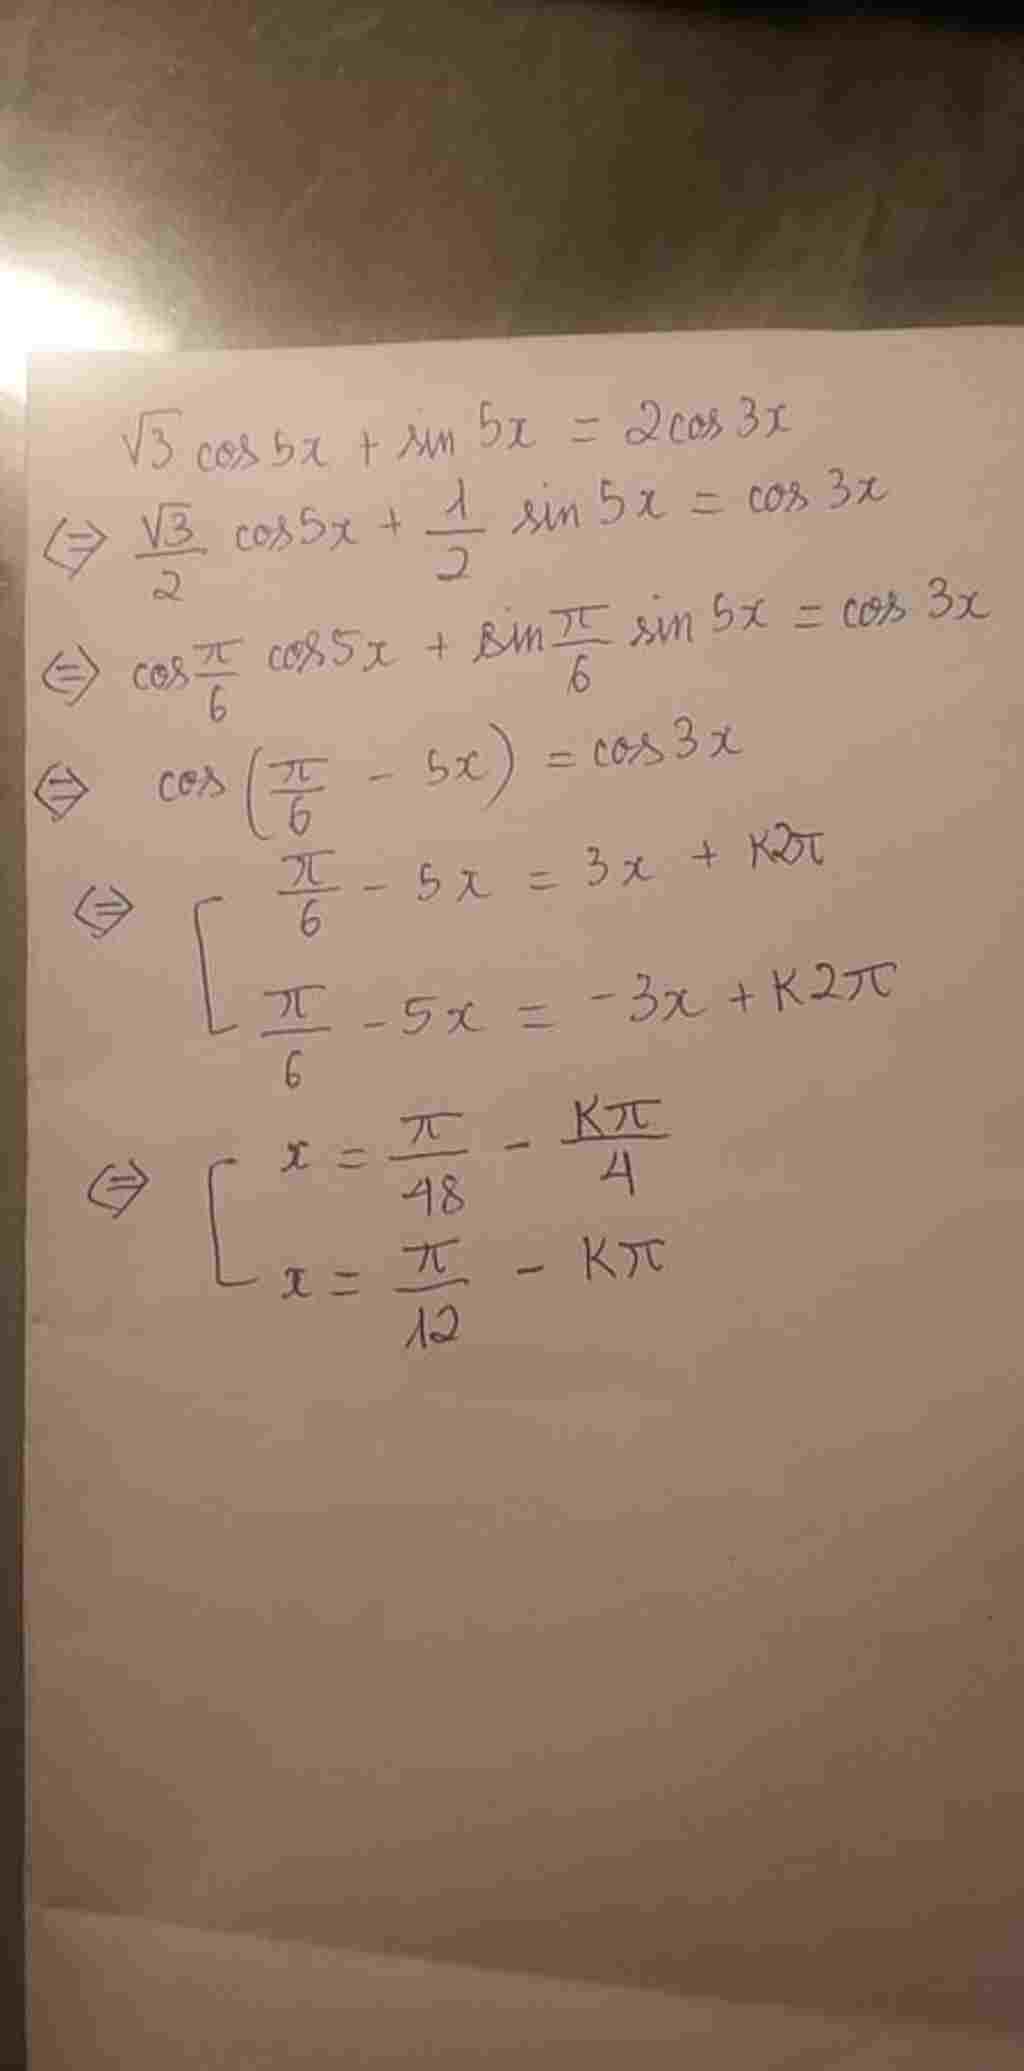 √3 cos5x + sin 5x = 2cos3x
⇔ √3/2 cos5x + 1/2 sin 5x = cos 3x
⇔ cos π/6 cos5x + sin π/6 sin 5x = cos 3x
⇔ cos(π/6 - 5x) = cos3x
⇔ [ π/6 - 5x = 3x + K2π
π/6 - 5x = -3x + K2π
⇔ [ x = π/48 - Kπ/4
x = π/12 - Kπ